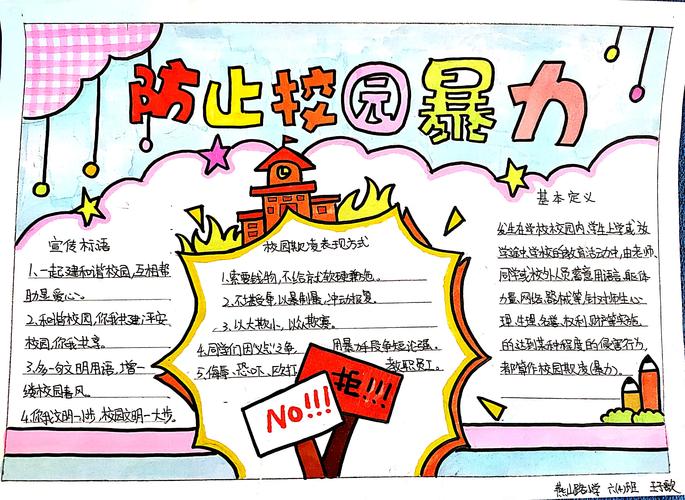 防止校园暴力
宣传标语
1、一起建和谐校园,互相帮
助是爱心。
2、和谐校园,你我共建;平安
校园,你我共享。
3、多一句文明用语,增一
缕校园春风。
4、你我文明一小步,校园文明一大步。
校园欺凌表现方式
1、索要钱物,不给就软硬兼施。
2、不堪受辱,以暴制暴,冲动报复。
3、以大欺小,以众欺寡。
4、同学们因"一点"之争 用暴力手段争短论强。
5、侮辱、恐吓、殴打 教职员工。
NO!!!
拒!!!
基本定义
发生在学校校园内,学生上学或放
学途中,学校的教育活动中,由老师、
同学或校外人员蓄意用语言、躯体
力量、网络、器械等,针对师生心
理、生理、名誉、权利、财产实施
的达到某种程度的侵害行为,
都算作校园欺凌(暴力)。
燕山路小学 六(4)班